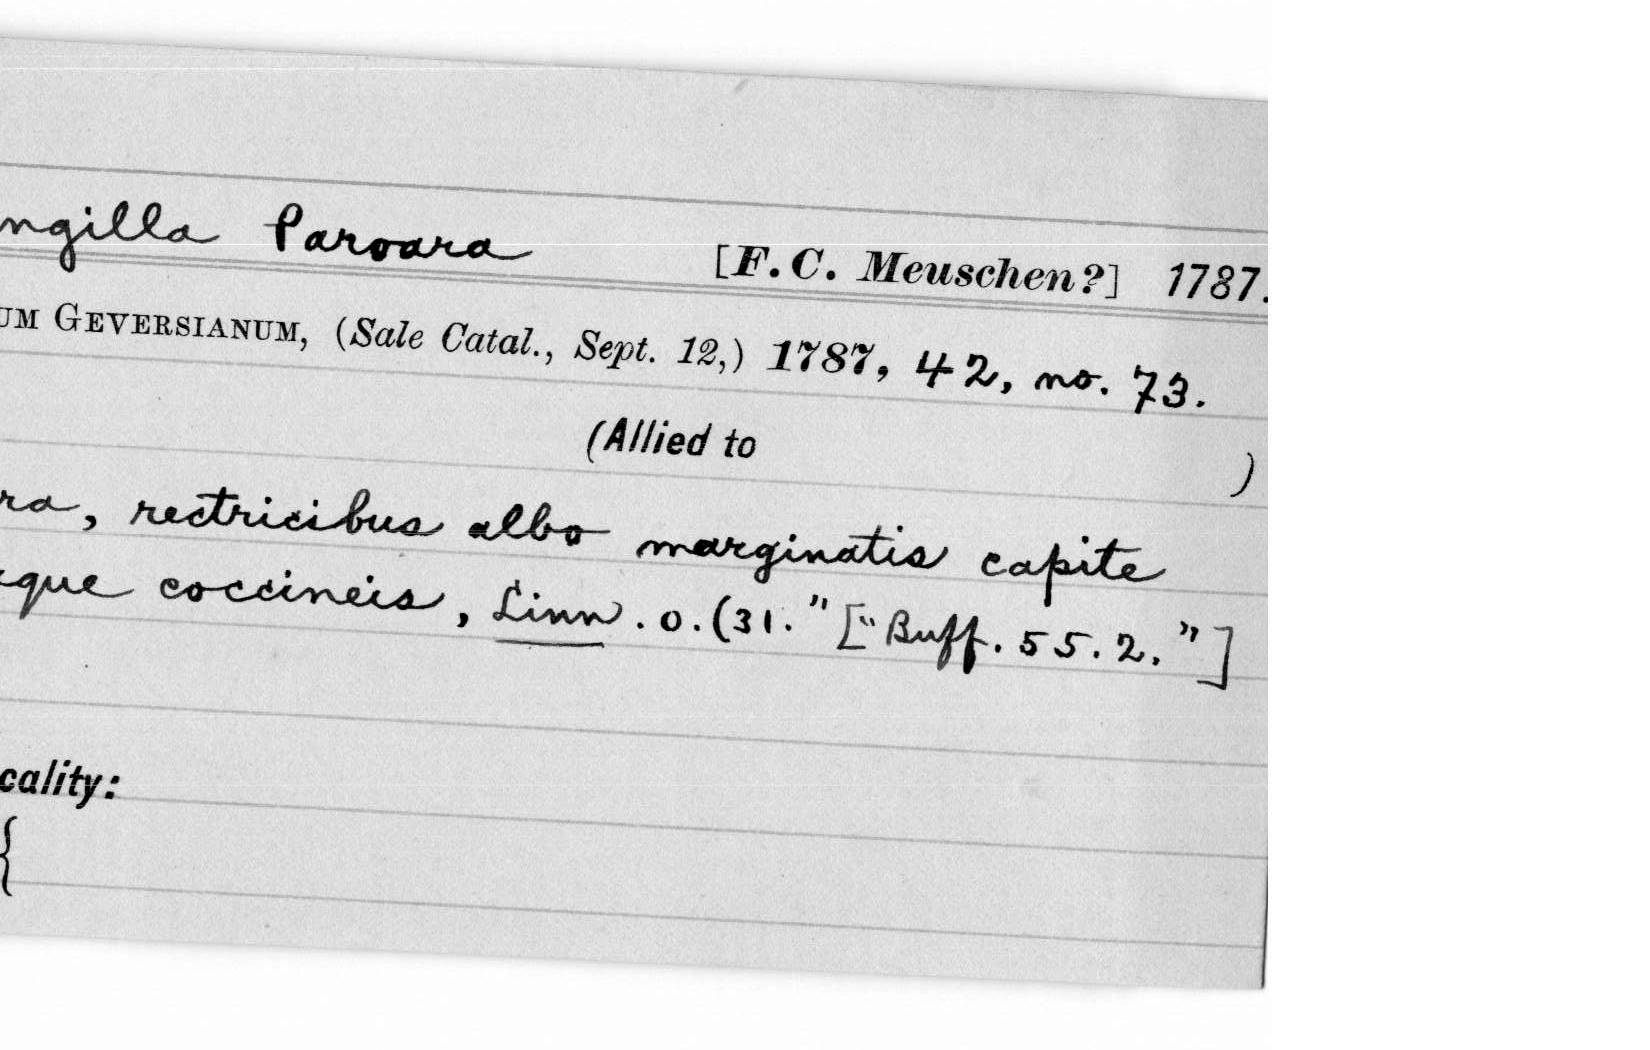 ngilla Paroara [F. C. Meuschen?] 1787.
UM GEVERSIANUM, (Sale Catal., Sept. 12,) 1787, 42, no. 73.
(Allied to )
ra, rectricibus albo marginatis capite
que coccineis, Linn. o. (31." ["Buff. 55. 2."]
cality:
{